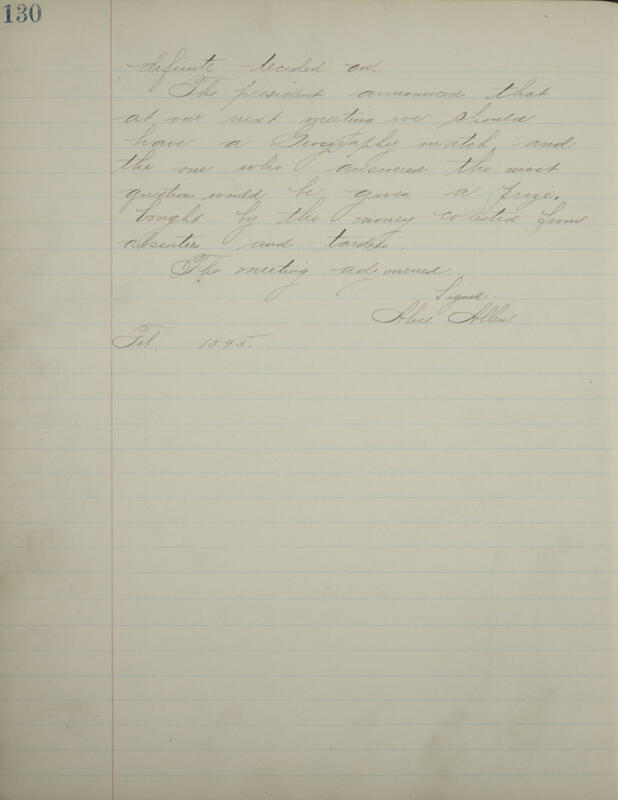 130
definite decided on.
The president announced that
at our next meeting we should
have a Geography match, and
the one who answered the most
question would be given a prize,
bought by the money collected from
absentees and tardies.
The meeting adjourned.
Signed
Alice Allen
Feb. 1895.